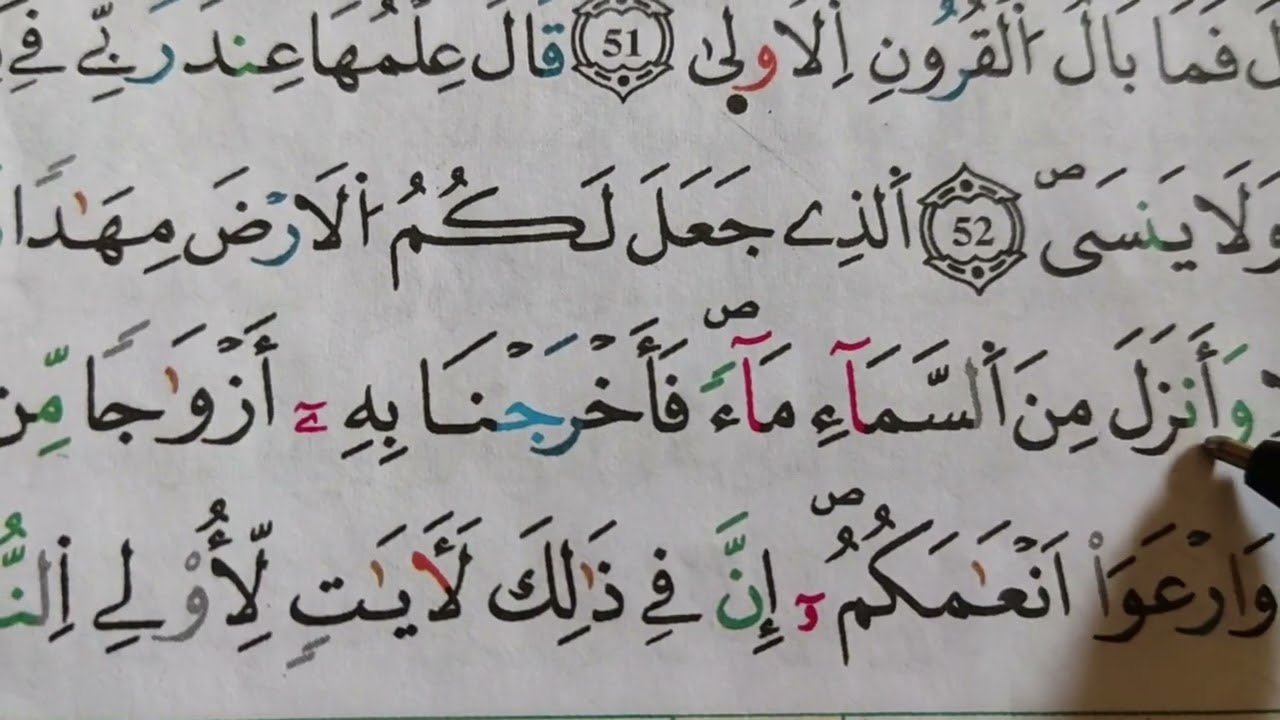 فَمَا بَالُ اُ۬لْقُرُونِ اِ۬لُاولَىٰ 51 قَالَ عِلْمُهَا عِندَ رَبِّے فِے
وَلَا يَنسَىۖ 52 اَ۬لذِے جَعَلَ لَكُمُ اُ۬لَارْضَ مِهَٰداٗ
وَأَنزَلَ مِنَ اَ۬لسَّمَآءِ مَآءٗۖ فَأَخْرَجْنَا بِهِۦٓ أَزْوَٰجاٗ مِّن
وَارْعَوَاْ اَنْعَٰمَكُمُۥٓۖ إِنَّ فِے ذَٰلِكَ لَأٓيَٰتٖ لِّأُوْلِے